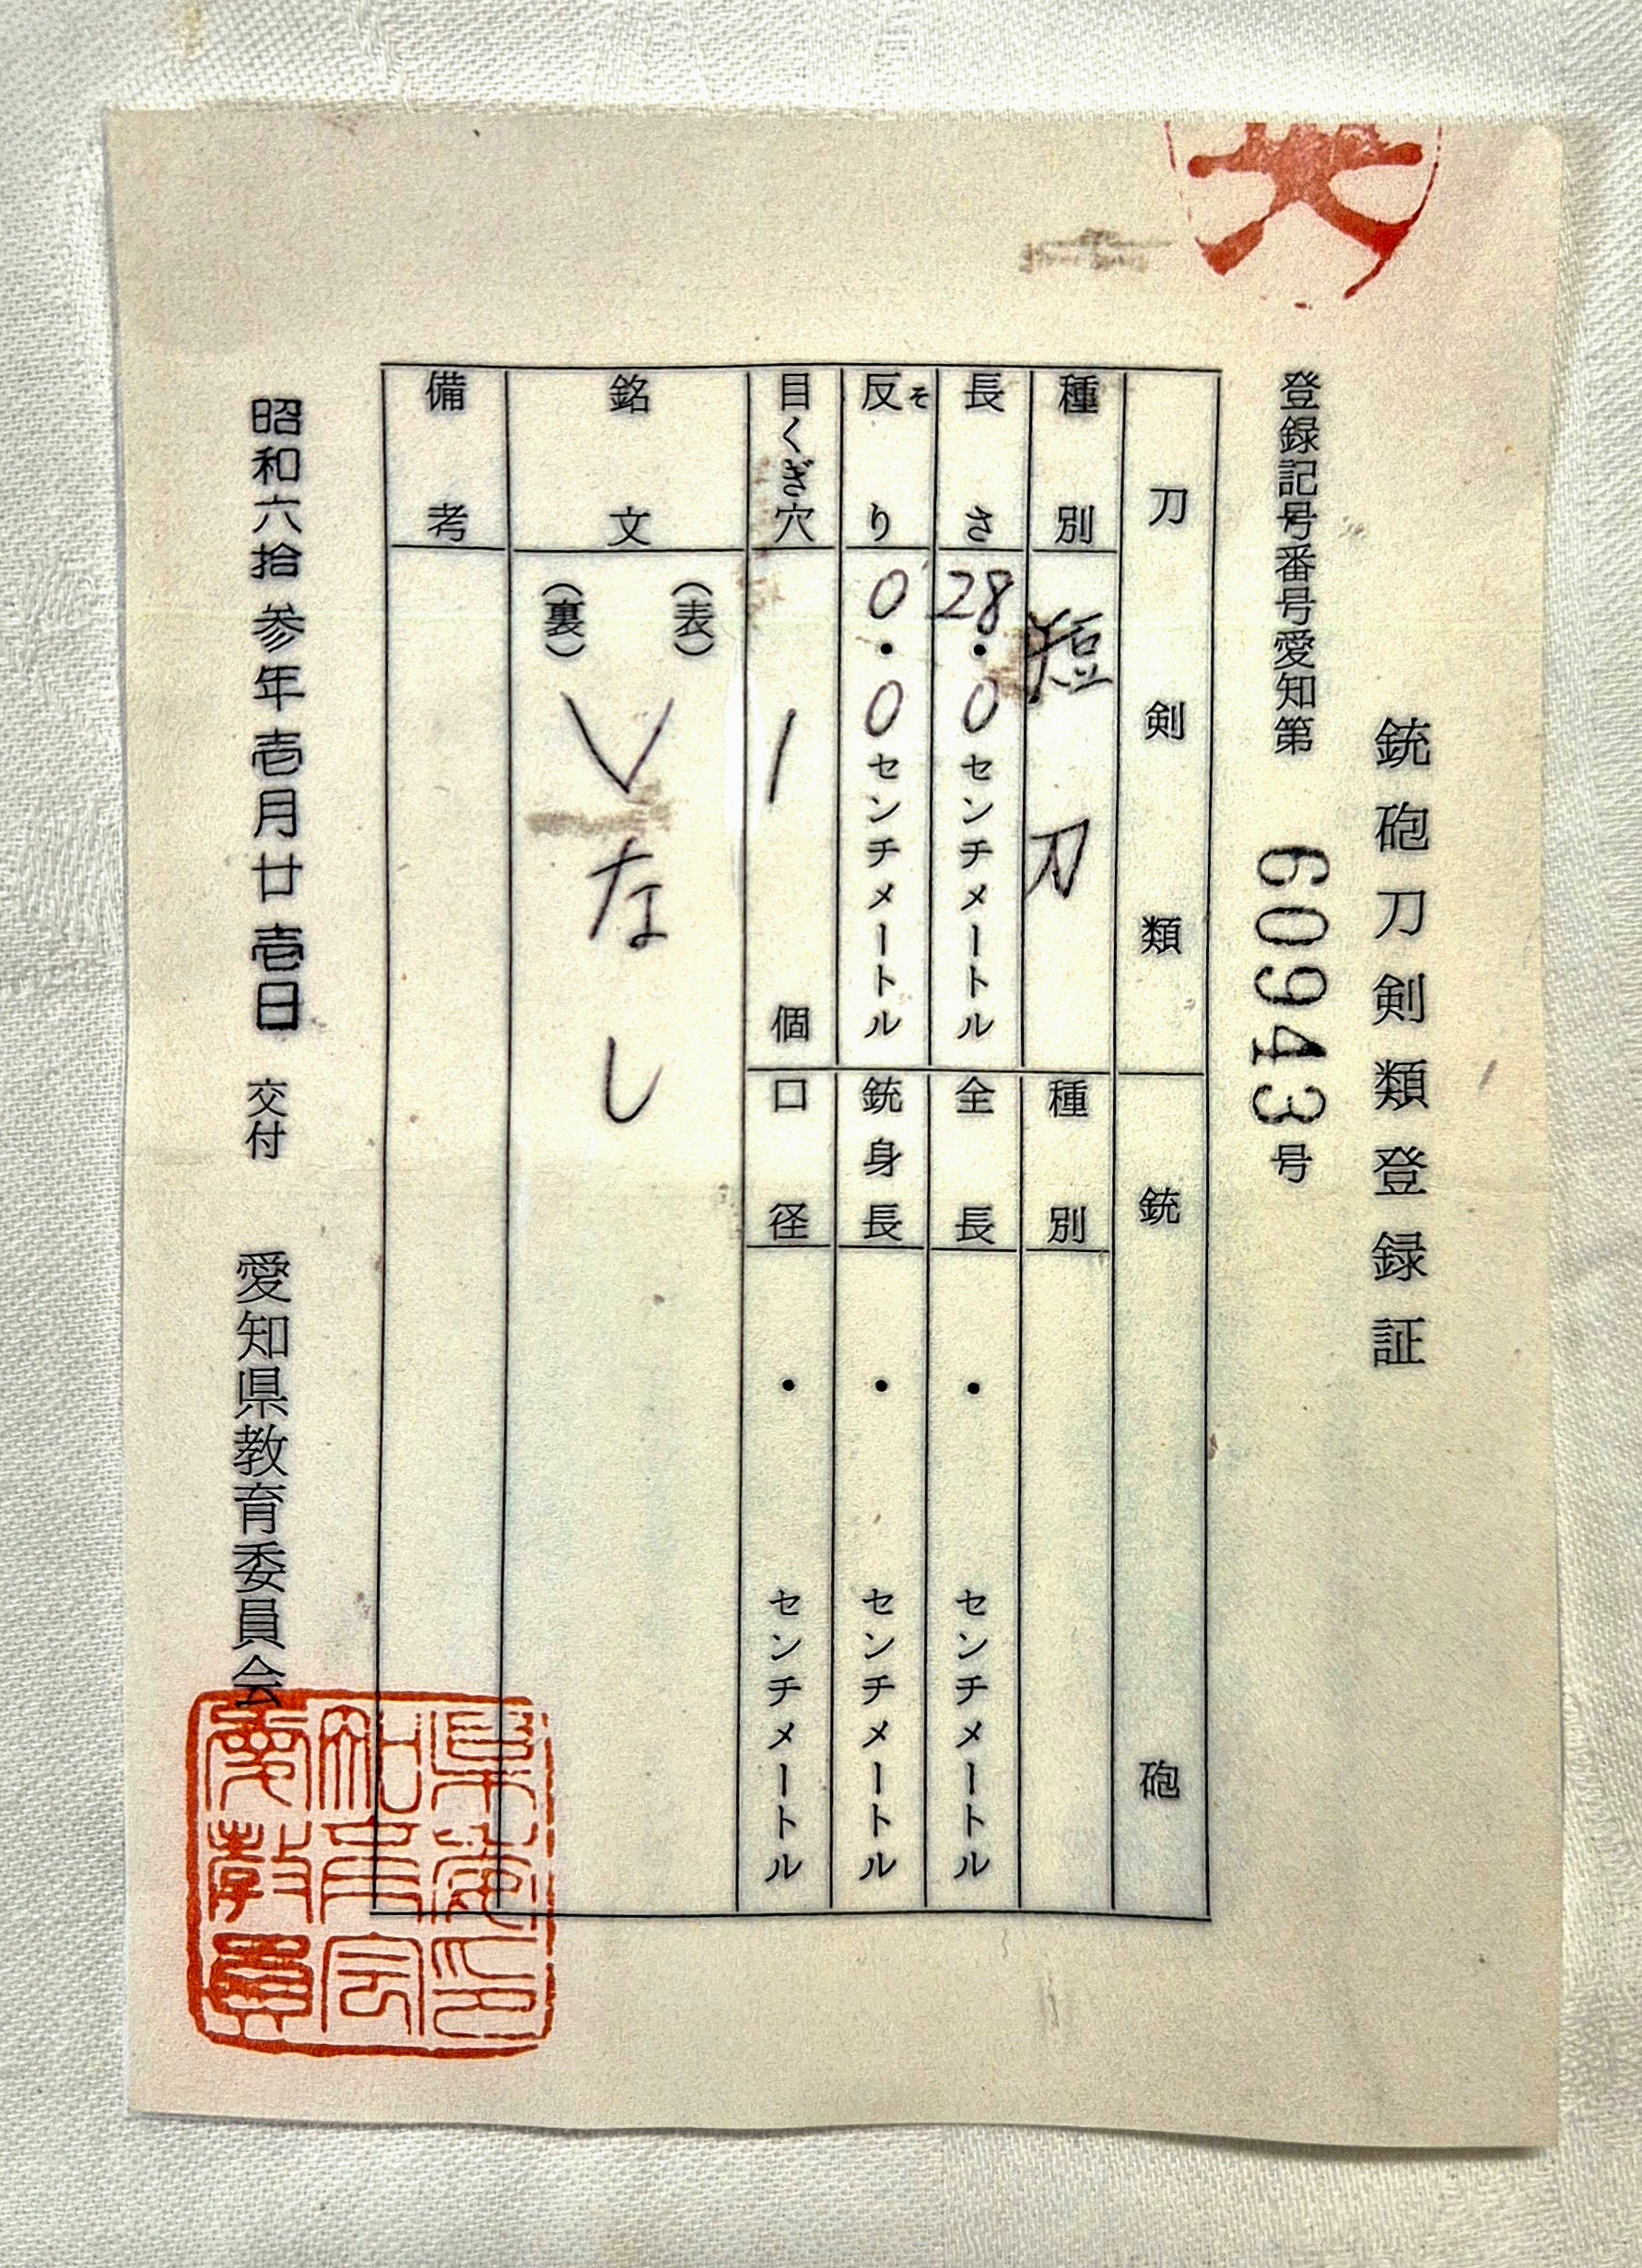 銃砲刀剣類登録証
登録記号番号愛知第 60943 号
刀剣類
種別 短刀
長さ 28.0センチメートル
反り 0.0センチメートル
そ
目くぎ穴 1個
銘文 (表) (裏) なし
備考
銃砲
種別
全長 ・ センチメートル
銃身長 ・ センチメートル
口径 ・ センチメートル
昭和六拾参年壱月廿壱日 交付 愛知県教育委員会